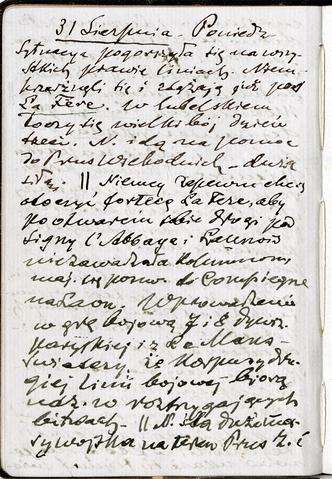 31 Sierpnia. Poniedz
Sytuacya pogorszyła się na wszy-
stkich prawie liniach. Niem-
przeszli się i zbliżają już pod
La Fère. W lubelskiem
toczy się wielki bój dzień
trzeci. N. idą na pomoc
do Prus Wschodnich - dużą
siłą. || Niemcy zapewne chcą
otoczyć fortecę La Fère, aby
po otwarciu sobie drogi pod
Signy l'Abbaye i Launois
nie zawadzała kolumnom
maj. w pomw. do Compiegne
na Laon. Wprowadzenie
w grę bojową 7 i 8 dywiz
paryskiej i z Le Mans -
świadczy, że korpusy dru-
giej linii bojowej biorą
udz. w rozstrzygających
bitwach. || N. ślą dużo ma-
sy wojska na teren Prus Z. i